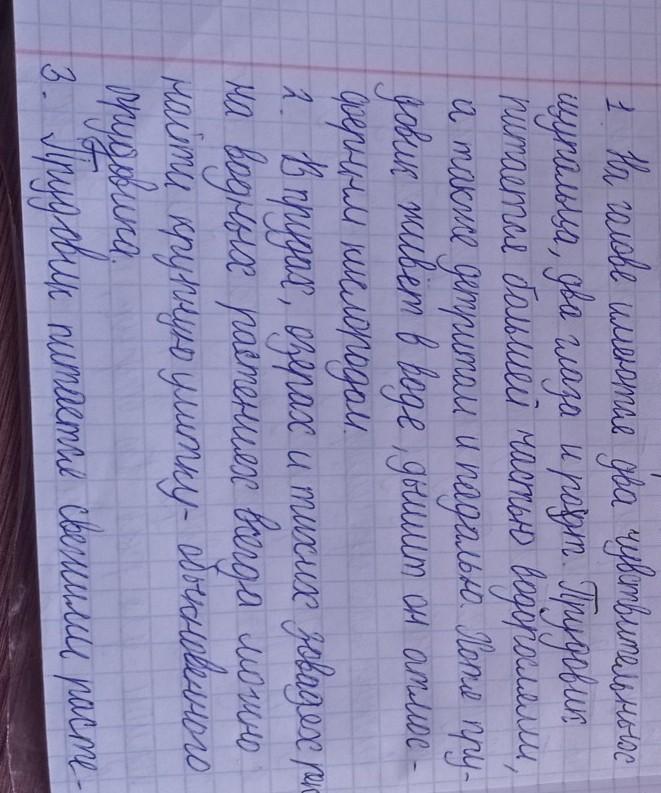 1 На голове имеются два чувствительных
щупальца, два глаза и рот. Прудовик
питается большей частью водорослями,
а также детритом и падалью. Хотя пру-
довик живёт в воде, дышит он атмос-
ферным кислородом.
2. В прудах, озерах и тихих заводях рек
на водных растениях всегда можно
найти крупную улитку - обыкновенного
прудовика.
3. Прудовик питается свежими расте-